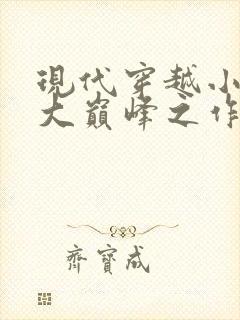 現代穿越小
大巔峰之作
齊寶成